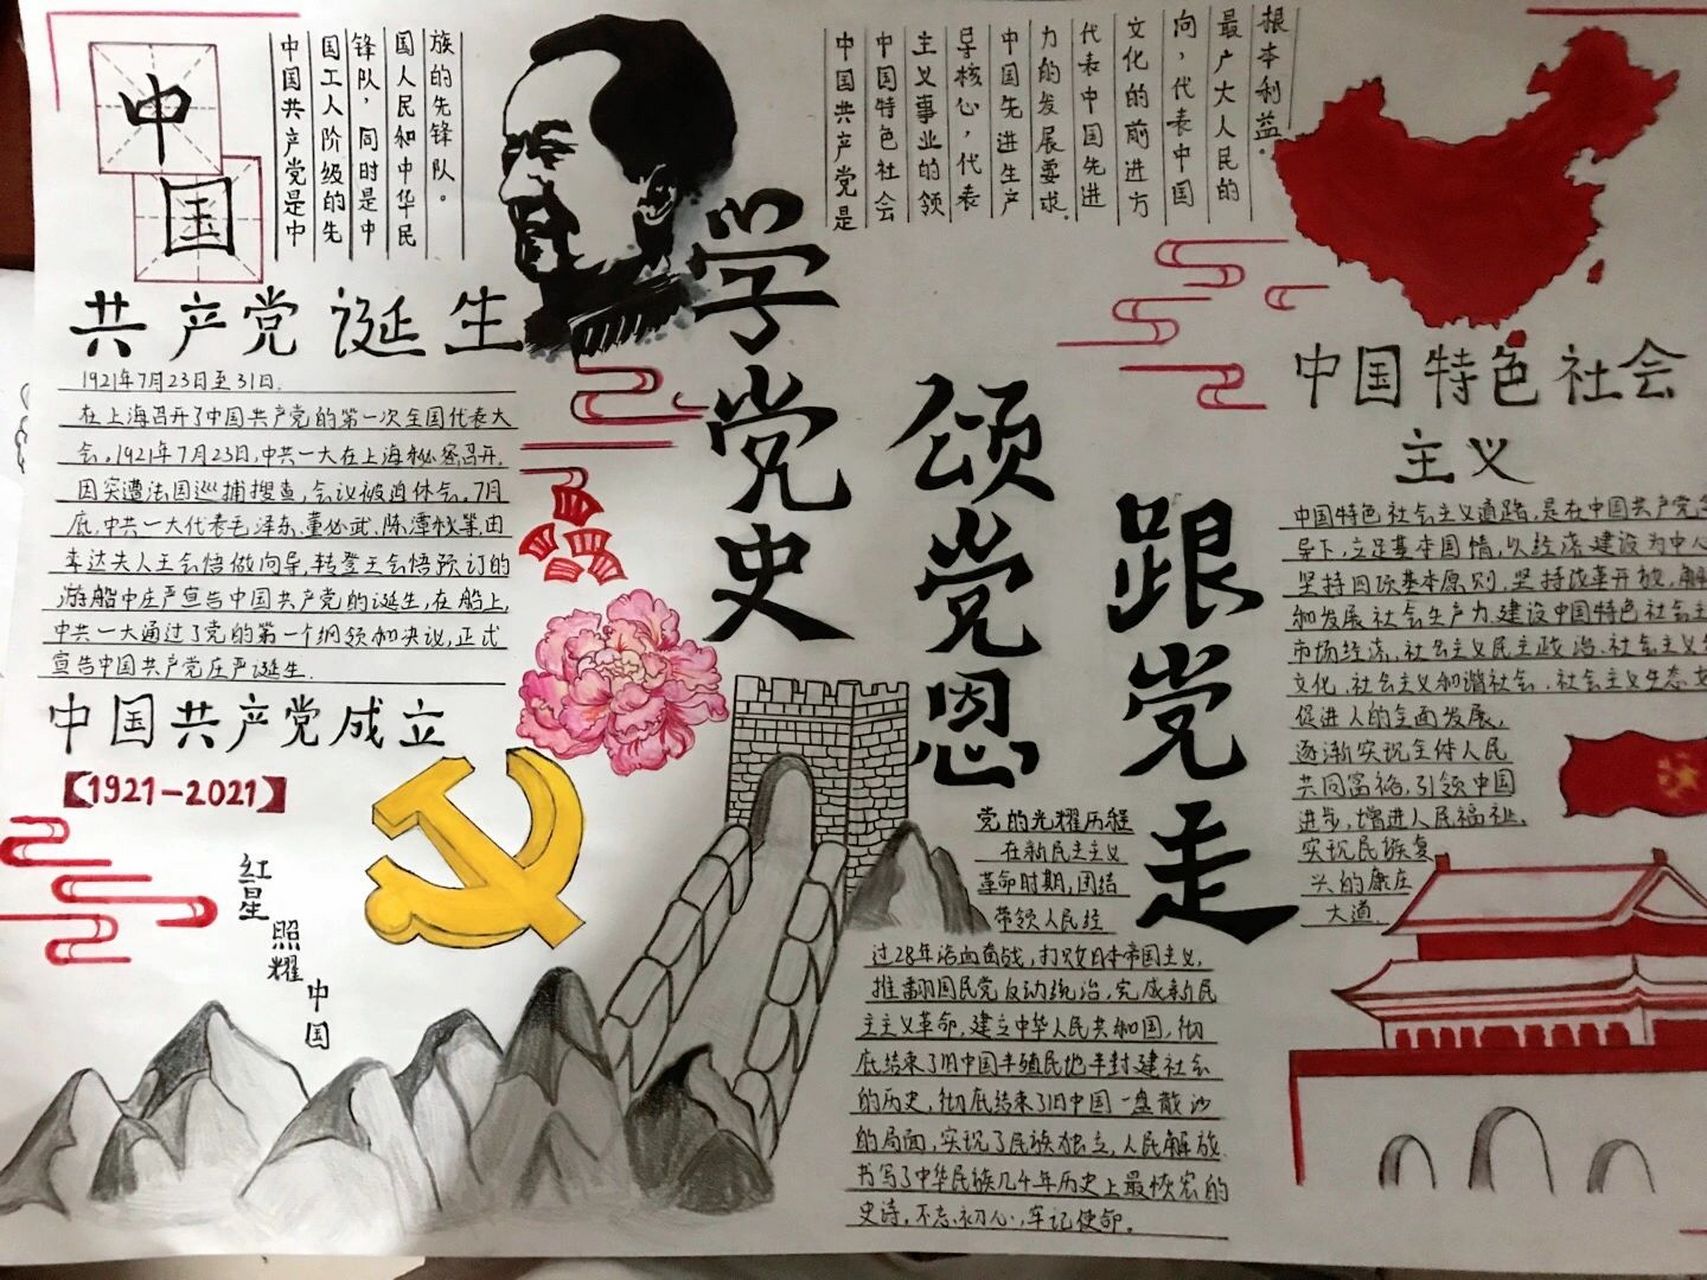 中
国
中国共产党是中
国工人阶级的先
锋队，同时是中
国人民和中华民
族的先锋队。
共产党诞生
1921年7月23日至31日.
在上海召开了中国共产党的第一次全国代表大
会。1921年7月23日,中共一大在上海秘密召开,
因突遭法国巡捕搜查,会议被迫休会。7月
底,中共一大代表毛泽东、董必武、陈潭秋等,由
李达夫人王会悟做向导,转登王会悟预订的
游船中庄严宣告中国共产党的诞生,在船上,
中共一大通过了党的第一个纲领和决议,正式
宣告中国共产党庄严诞生.
中国共产党成立
【1921-2021】
红星
照耀
中国
学党史
颂党恩
跟党走
中国共产党是
中国特色社会
主义事业的领
导核心,代表
中国先进生产
力的发展要求.
代表中国先进
文化的前进方
向,代表中国
最广大人民的
根本利益.
中国特色社会
主义
中国特色社会主义道路,是在中国共产党
导下,立足基本国情,以经济建设为中
坚持四项基本原则,坚持改革开放,
和发展社会生产力,建设中国特色社会
市场经济,社会主义民主政治.社会主义
文化,社会主义和谐社会.社会主义生态
促进人的全面发展,
逐渐实现全体人民
共同富裕,引领中国
进步,增进人民福祉,
实现民族复
兴的康庄
大道.
党的光耀历程
在新民主主义
革命时期,团结
带领人民经
过28年浴血奋战,打败日本帝国主义,
推翻国民党反动统治,完成新民
主主义革命,建立中华人民共和国,彻
底结束了旧中国半殖民地半封建社会
的历史,彻底结束了旧中国一盘散沙
的局面,实现了民族独立,人民解放.
书写了中华民族几千年历史上最恢宏的
史诗,不忘初心,牢记使命.